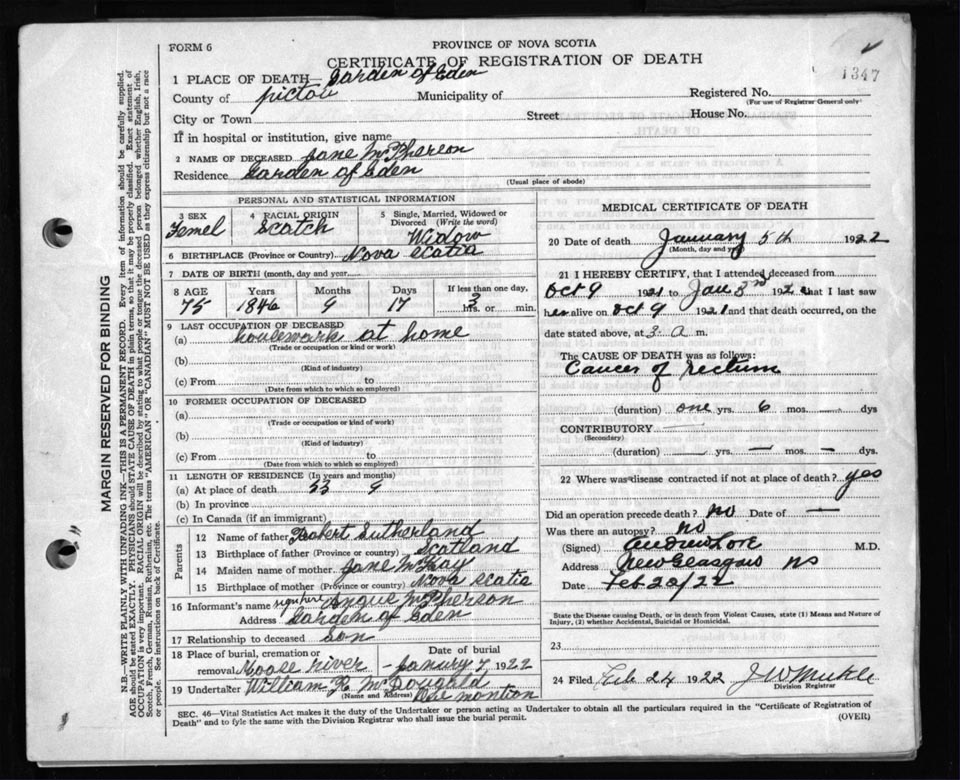 FORM 6
PROVINCE OF NOVA SCOTIA
CERTIFICATE OF REGISTRATION OF DEATH
1347
1 PLACE OF DEATH— Garden of Eden
County of Pictou Municipality of Registered No.
(For use of Registrar General only)
City or Town Street House No.
If in hospital or institution, give name
2 NAME OF DECEASED Jane McPherson
Residence Garden of Eden
(Usual place of abode)
PERSONAL AND STATISTICAL INFORMATION
3 SEX Femel
4 RACIAL ORIGIN Scotch
5 Single, Married, Widowed or Divorced (Write the word) Widow
6 BIRTHPLACE (Province or Country) Nova Scotia
7 DATE OF BIRTH (month, day and year)
8 AGE Years Months Days If less than one day,
75 1846 9 17 3 hrs. or min.
9 LAST OCCUPATION OF DECEASED
(a) housework at home
(Trade or occupation or kind or work)
(b)
(Kind of industry)
(c) From to
(Date from which to which so employed)
10 FORMER OCCUPATION OF DECEASED
(a)
(Trade or occupation or kind of work)
(b)
(Kind of industry)
(c) From to
(Date from which to which so employed)
11 LENGTH OF RESIDENCE (In years and months)
(a) At place of death 53 9
(b) In province
(c) In Canada (if an immigrant)
Parents
12 Name of father Robert Sutherland
13 Birthplace of father (Province or country) Scotland
14 Maiden name of mother Jane McKay
15 Birthplace of mother (Province or country) Nova Scotia
16 Informant's name signature Angue McPherson
Address Garden of Eden
17 Relationship to deceased son
18 Place of burial, cremation or removal Moose river
Date of burial January 7 1922
19 Undertaker William R McDougald
(Name and Address)
MEDICAL CERTIFICATE OF DEATH
20 Date of death January 5th 1922
(Month, day and year)
21 I HEREBY CERTIFY, that I attended deceased from
Oct 9 1921 to Jan 3rd 1922 that I last saw
her alive on Oct 9 1921 and that death occurred, on the
date stated above, at 3 a m.
The CAUSE OF DEATH was as follows:
Cancer of rectum
(duration) one yrs. 6 mos. — dys
CONTRIBUTORY —
(Secondary)
(duration) — yrs. — mos. — dys.
22 Where was disease contracted if not at place of death? yes
Did an operation precede death? no Date of —
Was there an autopsy? no
(Signed) Andrew Love M.D.
Address New Glasgow NS
Date Feb 20/22
State the Disease causing Death, or in death from Violent Causes, state (1) Means and Nature of
Injury, (2) whether Accidental, Suicidal or Homicidal.
23
24 Filed Feb 24 1922
Division Registrar
SEC. 46—Vital Statistics Act makes it the duty of the Undertaker or person acting as Undertaker to obtain all the particulars required in the "Certificate of Registration of
Death" and to fyle the same with the Division Registrar who shall issue the burial permit.
(OVER)
MARGIN RESERVED FOR BINDING
N.B.—WRITE PLAINLY WITH UNFADING INK—THIS IS A PERMANENT RECORD. Every item of information should be carefully supplied.
AGE should be stated EXACTLY. PHYSICIANS should STATE CAUSE OF DEATH in plain terms, so that it may be properly classified. Exact statement of
OCCUPATION is very important. RACIAL ORIGIN will be described by stating to what people or tongue the deceased person belonged whether English, Irish,
Scotch, French, German, Russian, Ruthenian, etc. The terms "AMERICAN" OR "CANADIAN" MUST NOT BE USED as they express citizenship but not a race
or people. See instructions on back of Certificate.